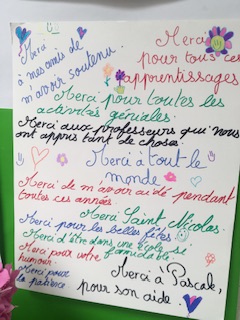 Merci
à mes amis de
m'avoir soutenu.
Merci
pour tous ces
apprentissages
Merci pour toutes les
activités géniales.
Merci aux professeurs qui nous
ont appris tant de choses.
Merci à tout le
monde
Merci de m'avoir aidé pendant
toutes ces années.
Merci Saint Nicolas.
Merci pour les belles fêtes.
Merci d'être dans une école si
formidable
Merci pour votre
humour.
Merci pour
la patience
Merci à Pascale,
pour son aide.